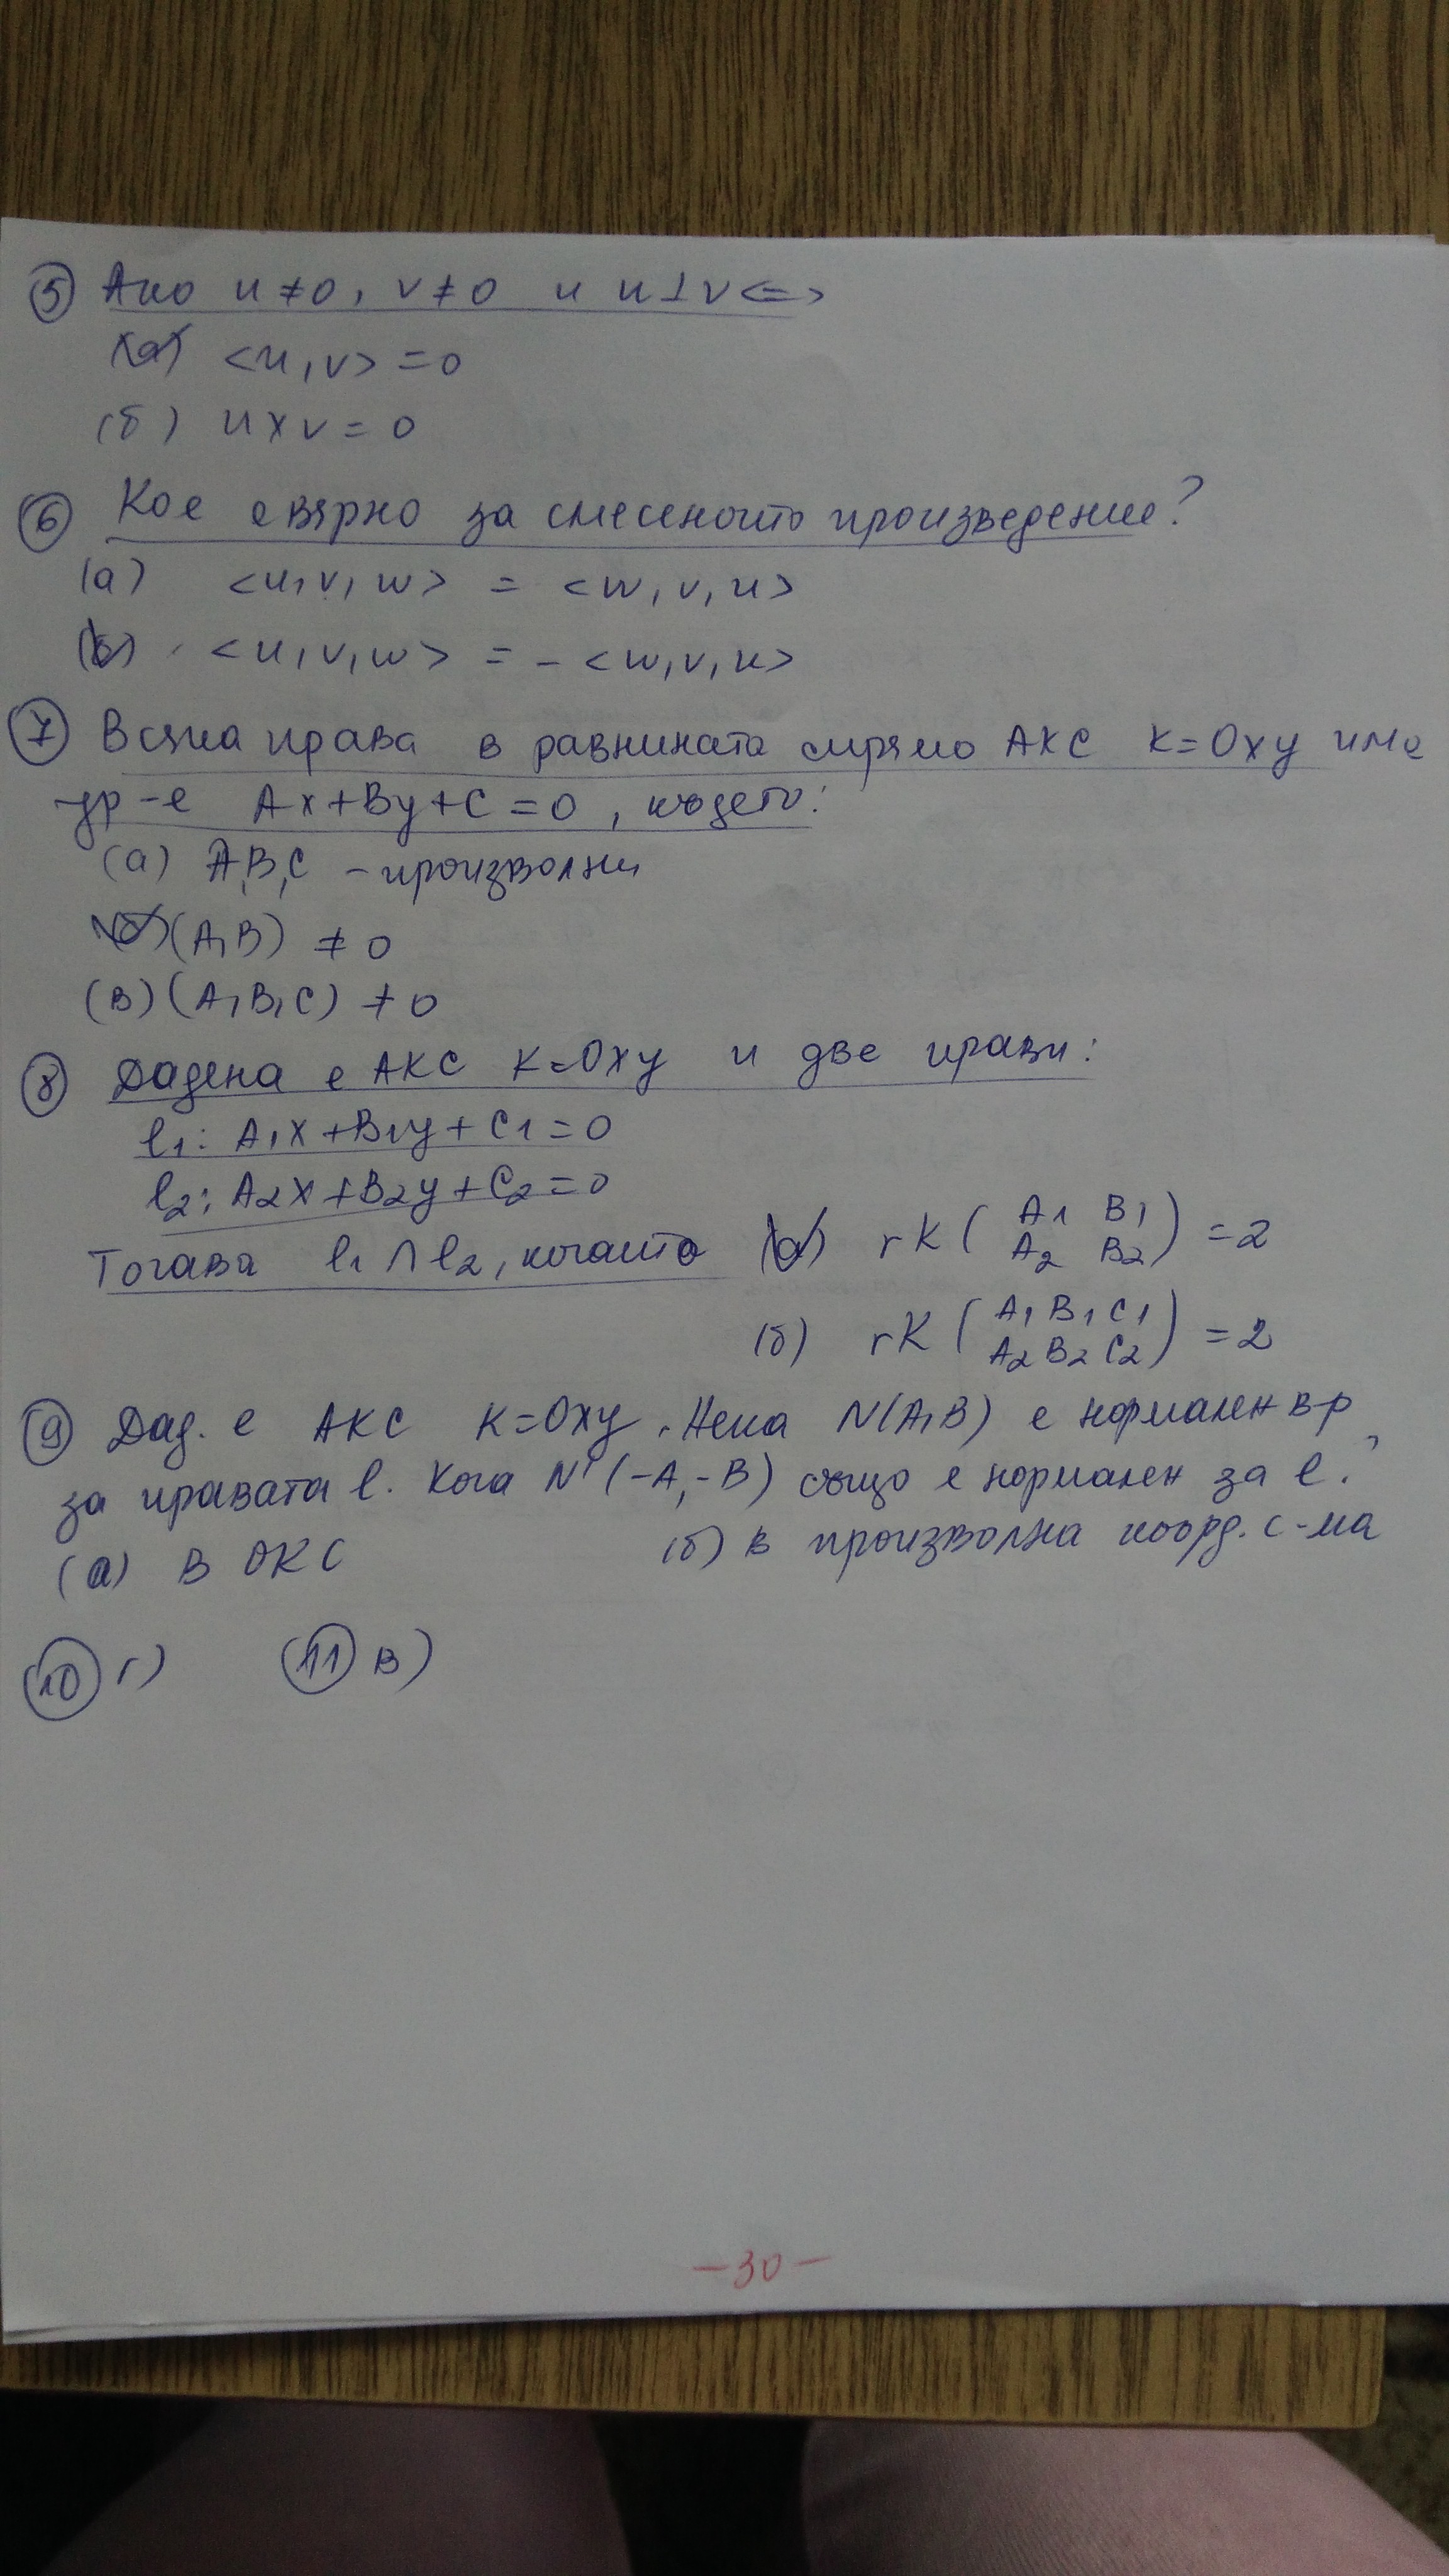 (5) Ако u ≠ 0, v ≠ 0 и u ⊥ v <=>
(а) <u, v> = 0
(б) u x v = 0
(6) Кое е вярно за смесеното произведение?
(а) <u, v, w> = <w, v, u>
(б) <u, v, w> = - <w, v, u>
(7) Всяка права в равнината спрямо АКС K=Oxy има
ур-е Ax+By+C=0, където:
(а) A,B,C - произволни
(б) (A,B) ≠ 0
(в) (A,B,C) ≠ 0
(8) Дадена е АКС K=Oxy и две прави:
l1: A1x+B1y+C1=0
l2: A2x+B2y+C2=0
Тогава l1 ∩ l2, когато (а) rk ( A1 B1
A2 B2 ) = 2
(б) rk ( A1 B1 C1
A2 B2 C2 ) = 2
(9) Дад. е АКС K=Oxy. Нека N(A,B) е нормален в-р
за правата l. Кога N'(-A,-B) също е нормален за l?
(а) в ОКС (б) в произволна коорд. с-ма
(10) г) (11) в)
-30-